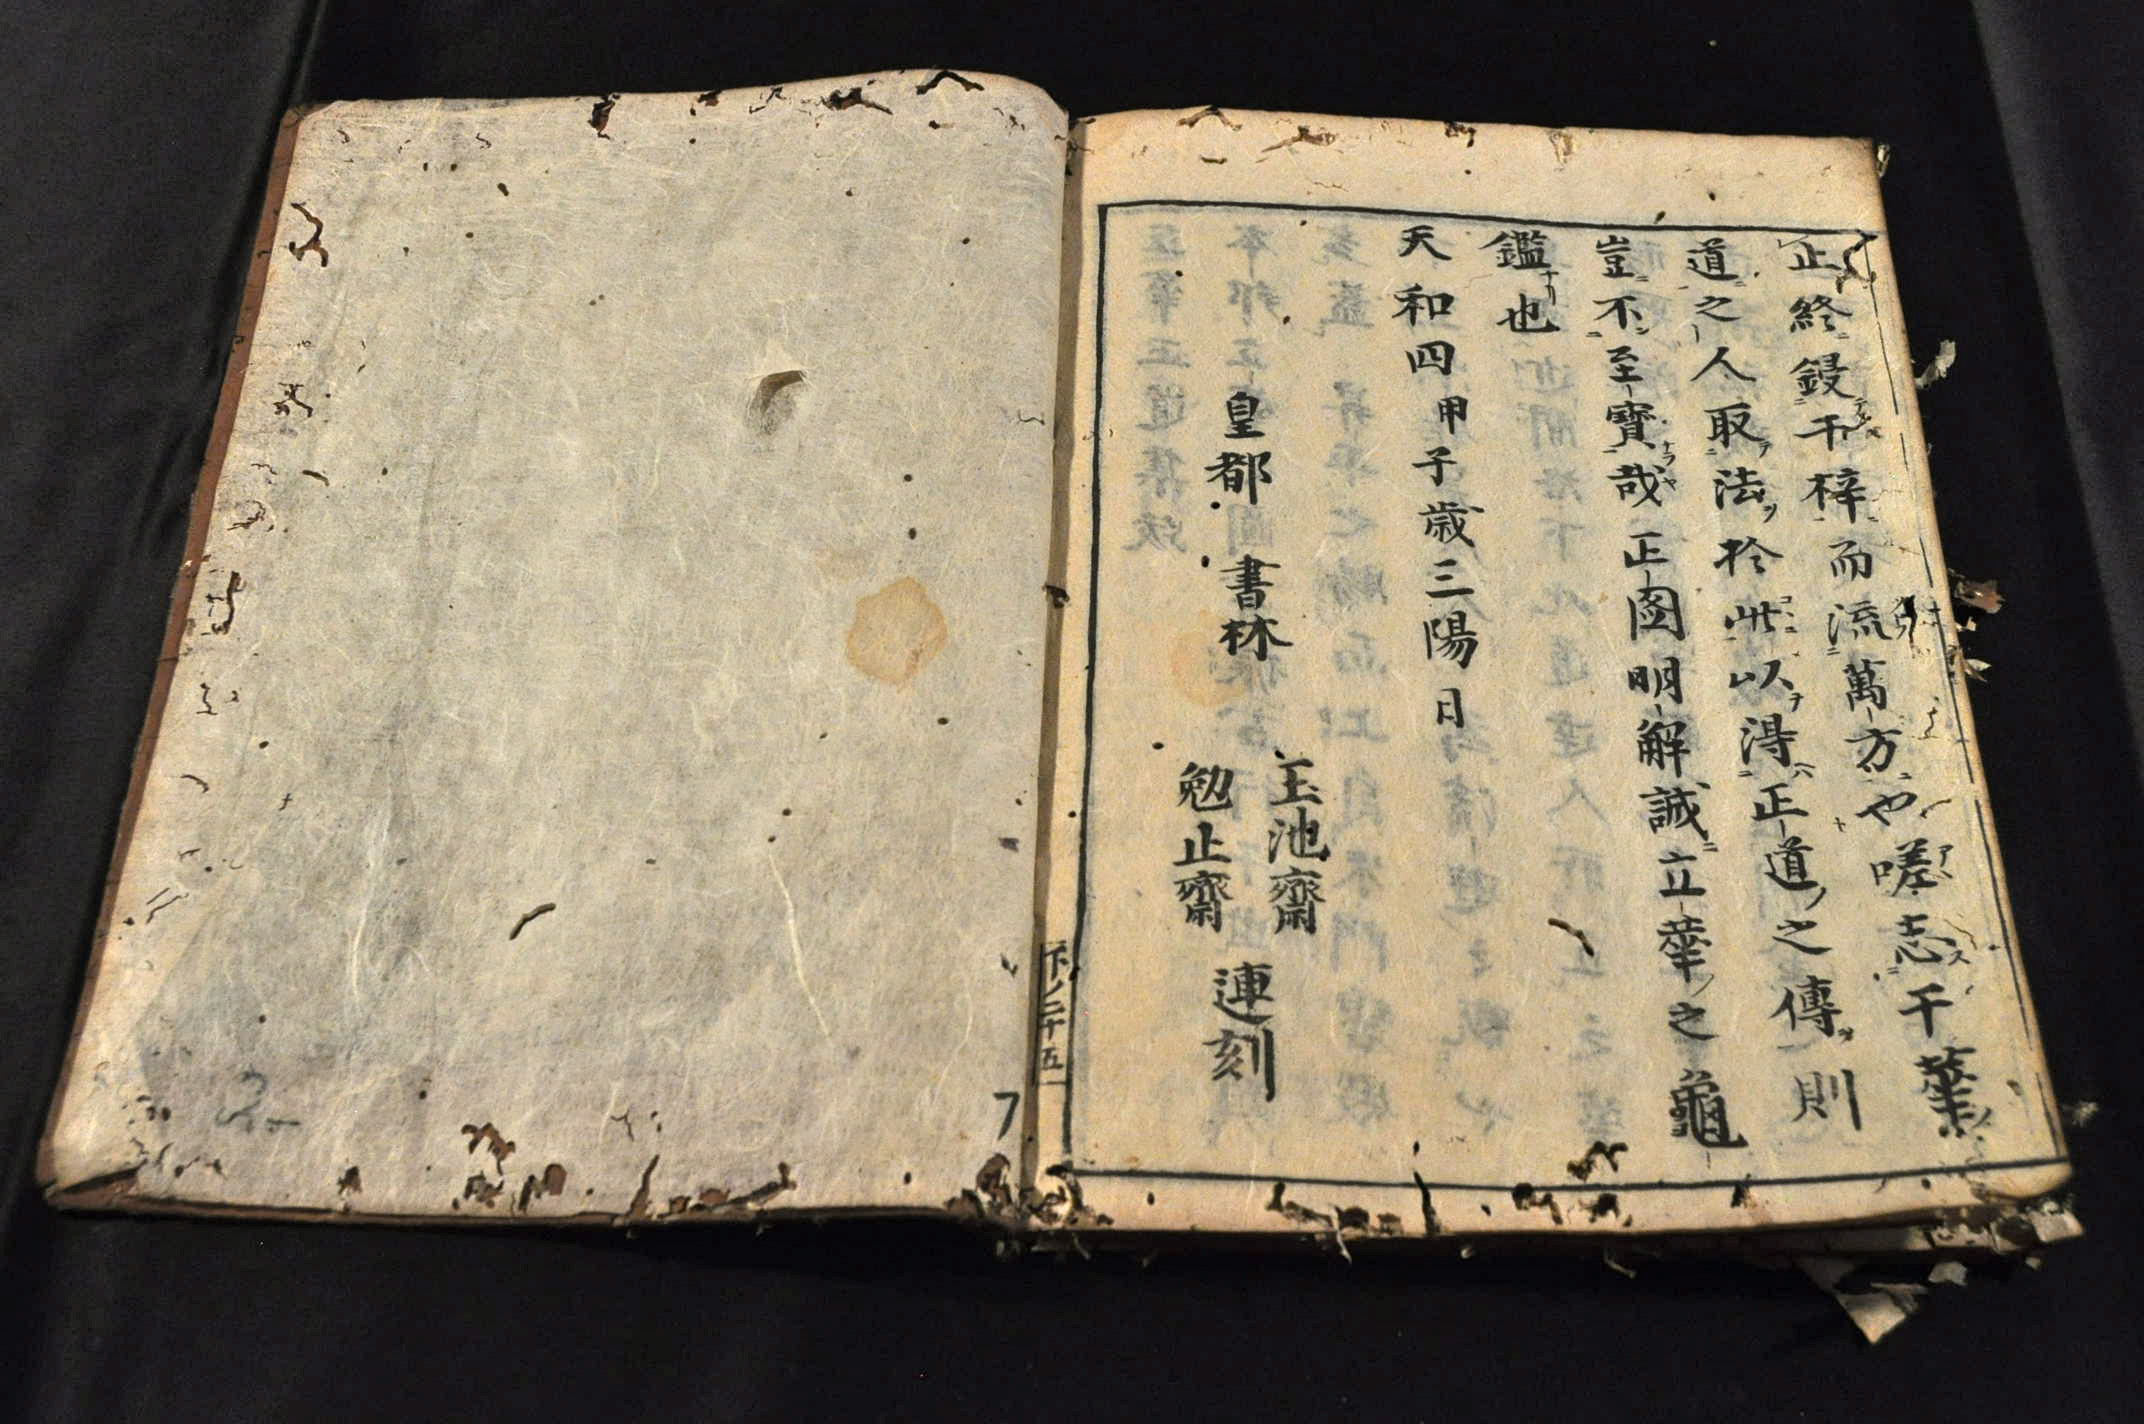 正終鋟于梓而流萬方也嗟志于華
道之人取法於此以得正道之傳則
豈不至寶哉正図明解誠立華之龜
鑑也
天和四甲子歳三陽日
皇都 書林
玉池齋
勉止齋
連刻
下ノ二十五
7